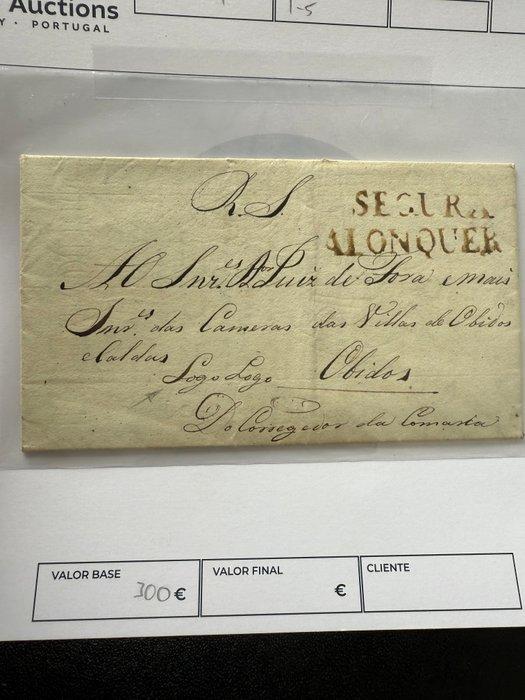 Auctions
Y · PORTUGAL
1-5
R. S.
SEGURA
ALONQUER
AO Snr.es Dor Juiz de Fora e mais
Snr.es das Cameras das Villas de Obidos
e Caldas
Logo Logo Obidos
Do Corregedor da Comarca
VALOR BASE
300 €
VALOR FINAL
€
CLIENTE